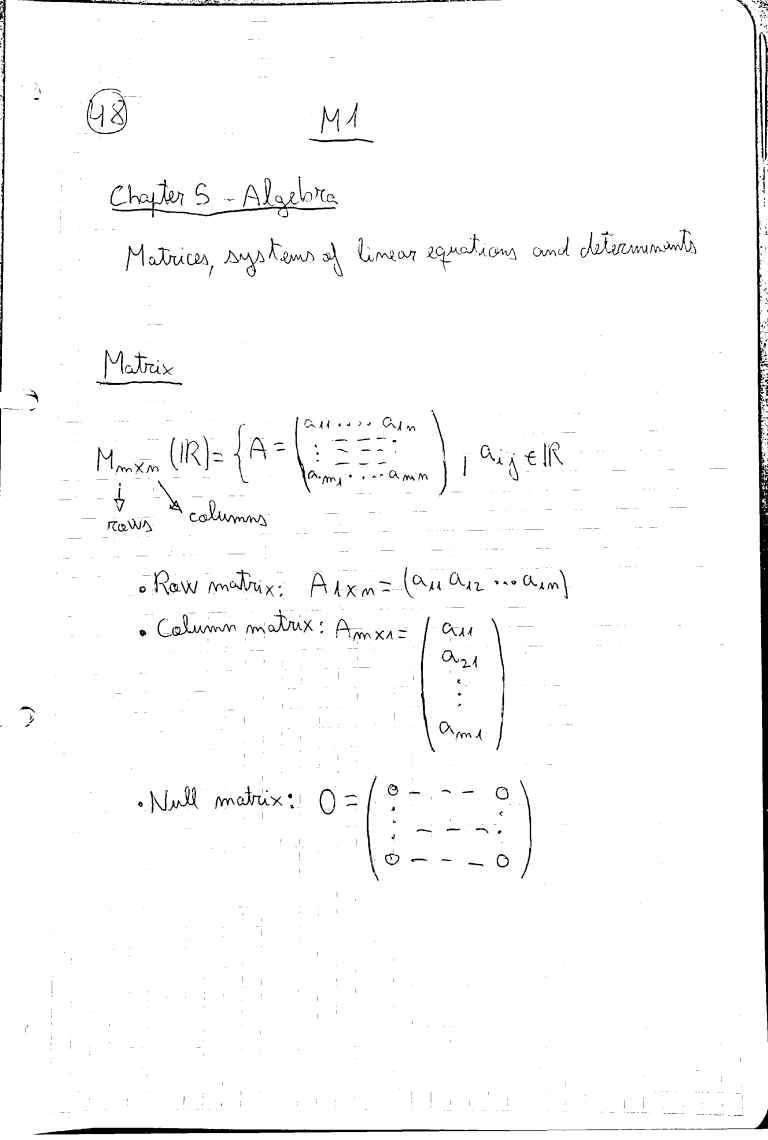 48
M1
Chapter 5 - Algebra
Matrices, systems of linear equations and determinants
Matrix
M_{m×n} (ℝ) = { A = ( a_{11} .... a_{1n} ⋮ - - - - ⋮ a_{m1} .... a_{mn} ) , a_{ij} ∈ ℝ
↓ rows ↘ columns
• Row matrix: A_{1×n} = (a_{11} a_{12} ... a_{1n})
• Column matrix: A_{m×1} = ( a_{11} a_{21} ⋮ a_{m1} )
• Null matrix: O = ( 0 - - - 0 ⋮ - - - ⋮ 0 - - - 0 )